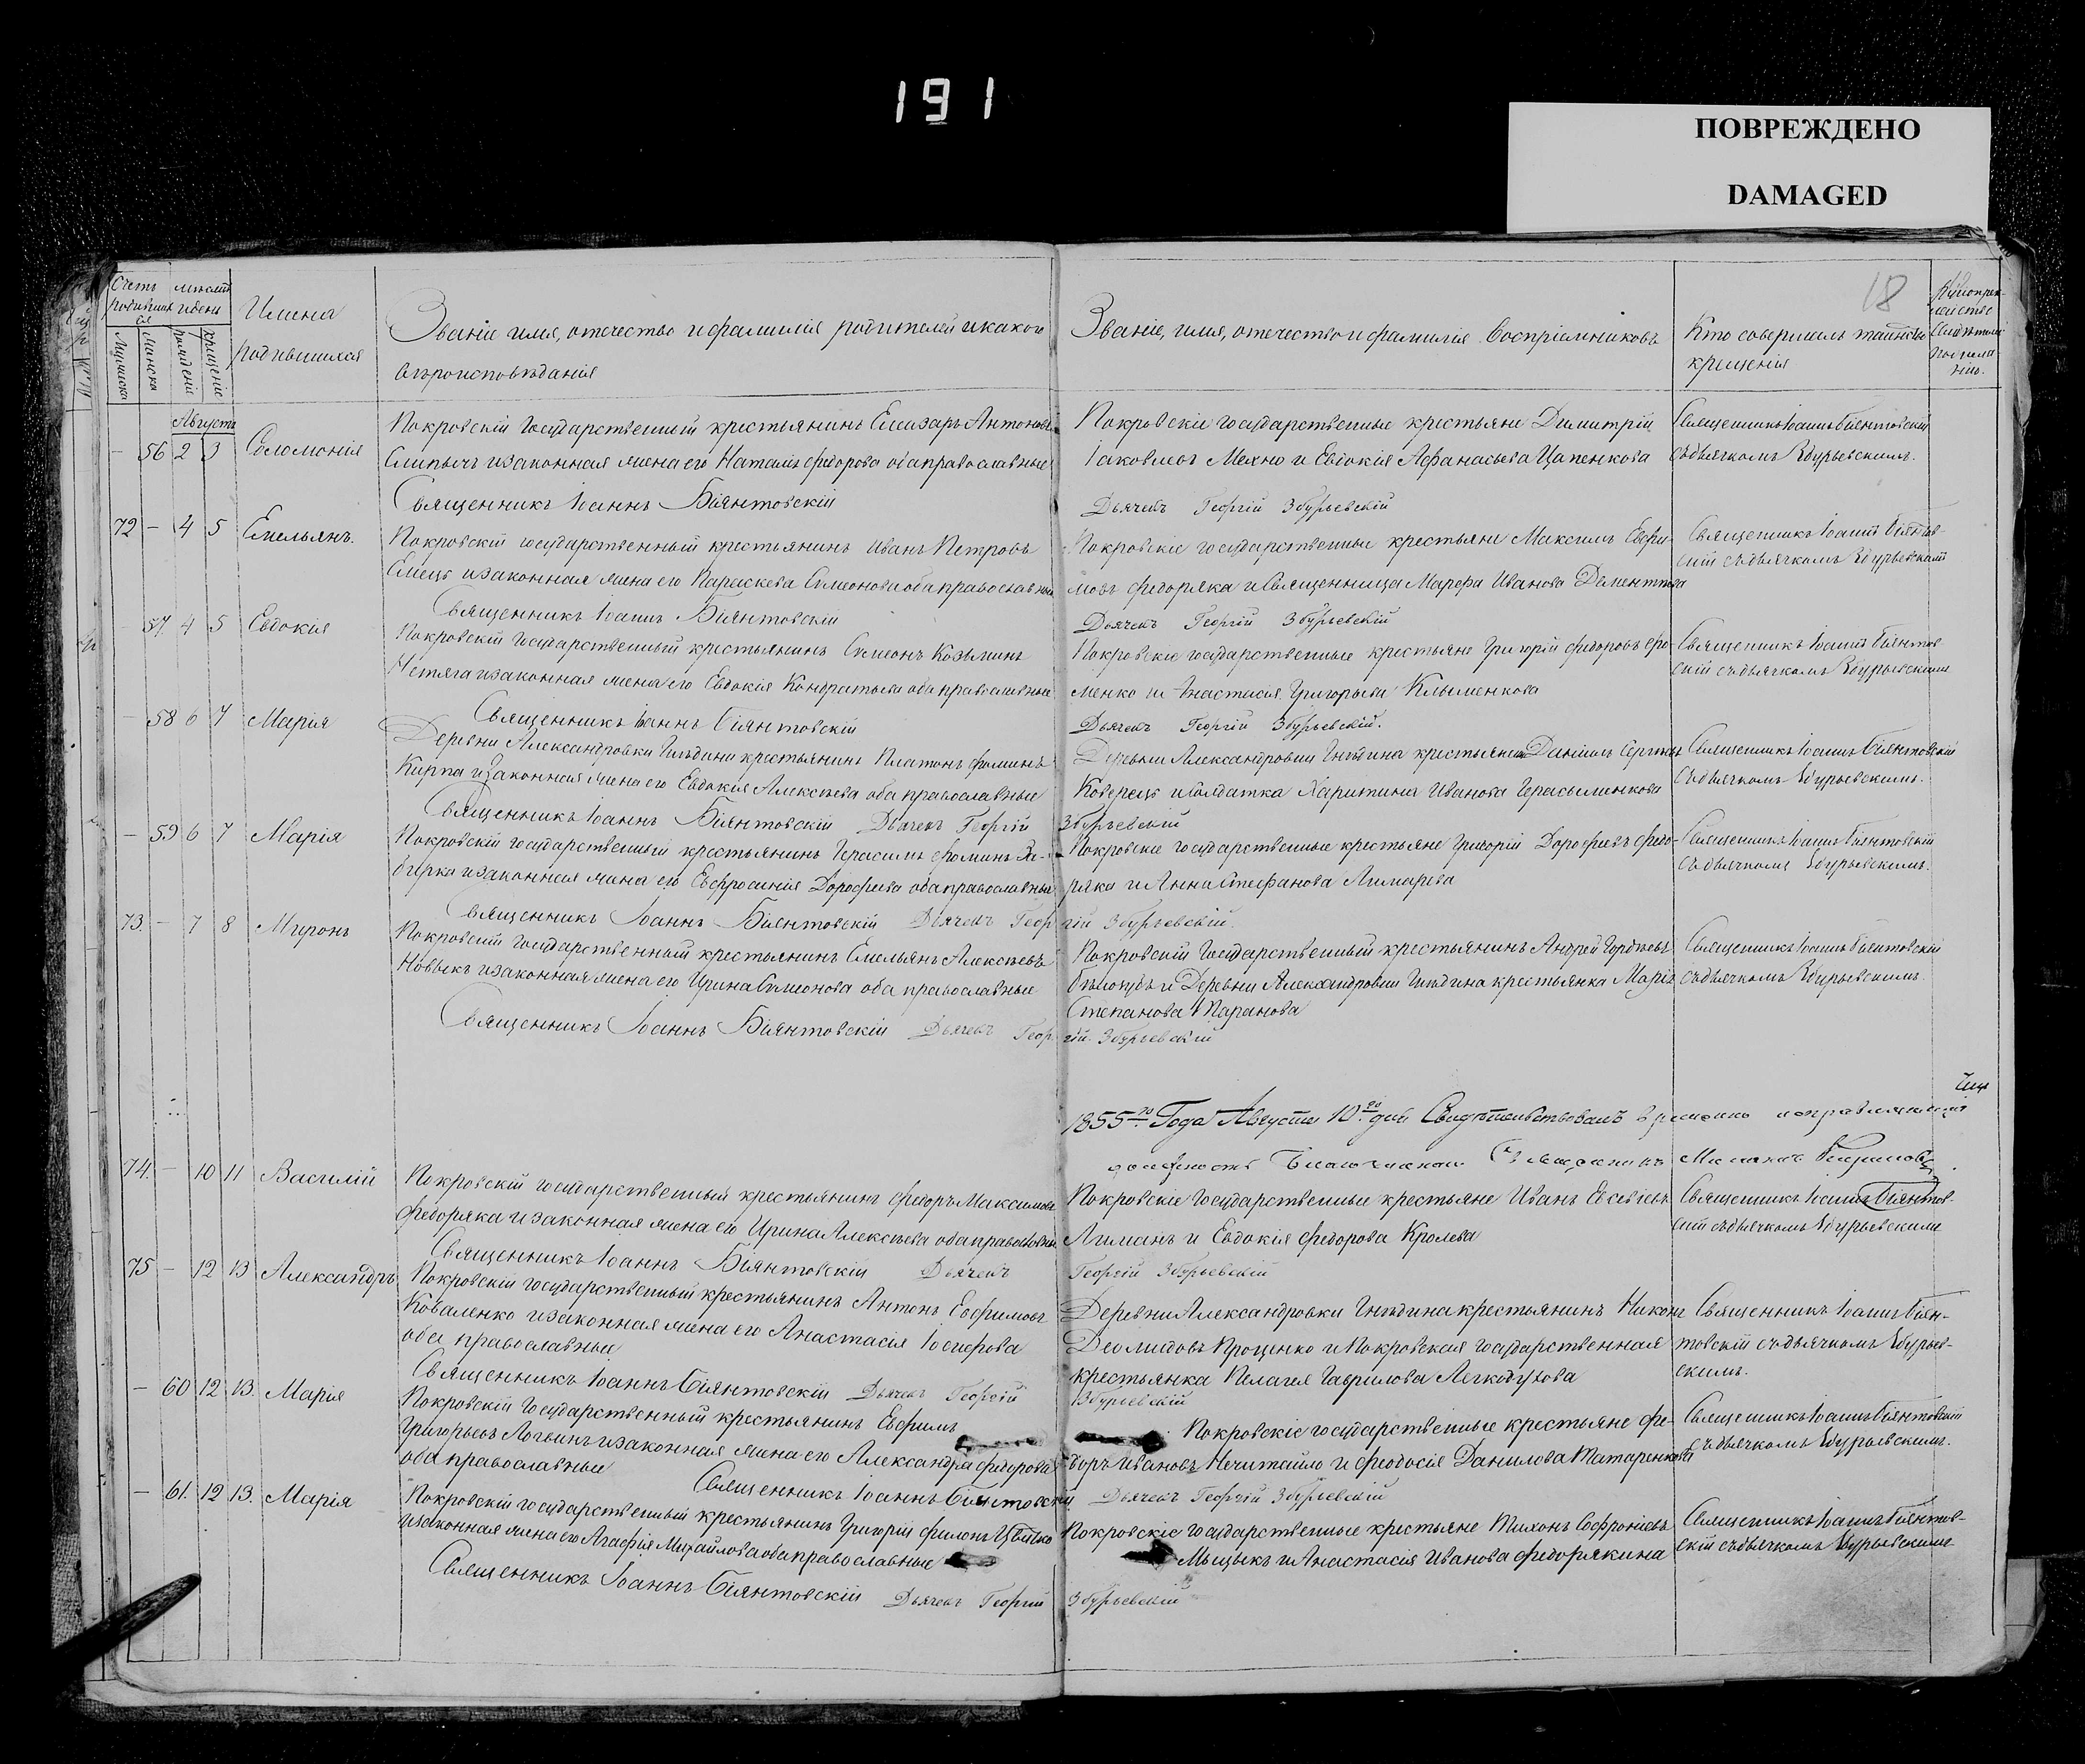 191
ПОВРЕЖДЕНО
DAMAGED
18
Счетъ родившихся
Мужеска
Женска
Мѣсяцъ и день
рожденія
крещенія
Имена родившихся
Званіе имя, отечество и фамилія родителей и какого
вѣроисповѣданія
Званіе, имя, отечество и фамилія Воспріемниковъ
Кто совершилъ таинство
крещенія
Августъ
56 2 3 Соломонія
Покровскій государственный крестьянинъ Елеазаръ Антоновъ
Слипычъ и законная жена его Наталія Федорова оба православные
Покровскіе государственные крестьяне Димитрій
Іаковлевъ Мехно и Евдокія Афанасьева Цапенкова
Священникъ Іоаннъ Біянтовскій
съ дьячкомъ Збурьевскимъ.
Священникъ Іоаннъ Біянтовскій
Дьячекъ Георгій Збурьевскій
72 – 4 5 Емельянъ.
Покровскій государственный крестьянинъ Иванъ Петровъ
Емецъ и законная жена его Параскева Симеонова оба православные
Покровскіе государственные крестьяне Максимъ Евфи-
мовъ Федоряка и Священница Марфа Иванова Дементьева
Священникъ Іоаннъ Біянтов-
скій съ дьячкомъ Збурьевскимъ
Священникъ Іоаннъ Біянтовскій
Дьячекъ Георгій Збурьевскій
– 57. 4 5 Евдокія
Покровскій государственный крестьянинъ Симеонъ Козьминъ
Нетяга и законная жена его Евдокія Кондратьева оба православные
Покровскіе государственные крестьяне Григорій Федоровъ Фо-
менко и Анастасія Григорьева Клыменкова
Священникъ Іоаннъ Біянтов
скій съ дьячкомъ Збурьевскимъ
Священникъ Іоаннъ Біянтовскій
Дьячекъ Георгій Збурьевскій.
– 58 6 7 Марія
Деревни Александровки крестьянинъ Платонъ Фоминъ
Кирпа и законная жена его Евдокія Алексѣева оба православные
Деревни Александровки крестьянинъ Даніилъ Сергѣевъ
Коверецъ и солдатка Харитина Иванова Герасыменкова
Священникъ Іоаннъ Біянтовскій
съ дьячкомъ Збурьевскимъ.
Священникъ Іоаннъ Біянтовскій Дьячекъ Георгій Збурьевскій
– 59 6 7 Марія
Покровскій государственный крестьянинъ Герасимъ Фоминъ
и законная жена его Евфросинія Дорофеева оба православные
Покровскіе государственные крестьяне Григорій Дорофеевъ Федо-
ряка и Анна Стефанова Лимарева
Священникъ Іоаннъ Біянтовскій
съ дьячкомъ Збурьевскимъ.
Священникъ Іоаннъ Біянтовскій Дьячекъ Георгій Збурьевскій.
73. – 7 8 Миронъ
Покровскій государственный крестьянинъ Емельянъ Алексѣевъ
Новыкъ и законная жена его Ирина Симеонова оба православные
Покровскій государственный крестьянинъ Андрей Гордѣевъ
Бѣлоусъ и Деревни Александровки крестьянка Марія
Степанова Таранова
Священникъ Іоаннъ Біянтовскій
съ дьячкомъ Збурьевскимъ.
Священникъ Іоаннъ Біянтовскій Дьячекъ Георгій Збурьевскій
1855го Года Августа 10го дня Свидѣтельствовалъ временно исправляющій
должность Благочиннаго Священникъ
74. – 10 11 Василій
Покровскій государственный крестьянинъ Федоръ Максимовъ
Федоряка и законная жена его Ирина Алексѣева оба православные
Покровскіе государственные крестьяне Иванъ Евсевіевъ
Лиманъ и Евдокія Федорова Кролева
Священникъ Іоаннъ Біянтов-
скій съ дьячкомъ Збурьевскимъ
Священникъ Іоаннъ Біянтовскій Дьячекъ Георгій Збурьевскій
75 – 12 13 Александръ
Покровскій государственный крестьянинъ Антонъ Евфимовъ
Коваленко и законная жена его Анастасія Іосифова
оба православные
Деревни Александровки крестьянинъ Никонъ
Деомидовъ Проценко и Покровская государственная
крестьянка Пелагея Гаврилова Легкодухова
Священникъ Іоаннъ Біян-
товскій съ дьячкомъ Збурьев-
скимъ.
Священникъ Іоаннъ Біянтовскій Дьячекъ Георгій Збурьевскій
– 60 12 13. Марія
Покровскій государственный крестьянинъ Евфимъ
Григорьевъ Логвинъ и законная жена его Александра Федорова
оба православные
Покровскіе государственные крестьяне Фе-
доръ Ивановъ Нечитайло и Феодосія Данилова Татаренкова
Священникъ Іоаннъ Біянтовскій
съ дьячкомъ Збурьевскимъ.
Священникъ Іоаннъ Біянтовскій Дьячекъ Георгій Збурьевскій
– 61. 12 13. Марія
Покровскій государственный крестьянинъ Григорій
и законная жена его Агафія Михайлова оба православные
Покровскіе государственные крестьяне Тихонъ Софроніевъ
Мыцыкъ и Анастасія Иванова Федорякина
Священникъ Іоаннъ Біянтов-
скій съ дьячкомъ Збурьевскимъ
Священникъ Іоаннъ Біянтовскій Дьячекъ Георгій Збурьевскій